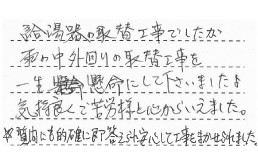 給湯器の取替工事でしたが
雨の中外回りの取替工事を
一生懸命にして下さいましたよ
気持良くて苦労様と心からいえました。
質問にも的確に即答え安心して工事をまかせられました。